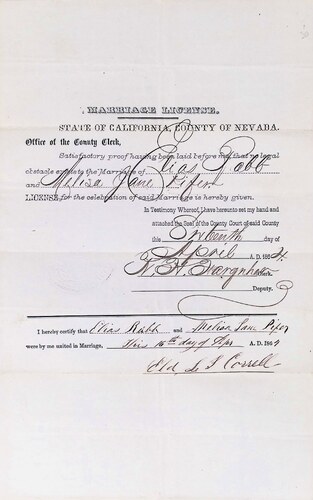 MARRIAGE LICENSE.
STATE OF CALIFORNIA, COUNTY OF NEVADA.
Office of the County Clerk,
Satisfactory proof having been laid before me that no legal
obstacle exists the Marriage of Elias Rabb
and Melisa Jane Pifer
LICENSE for the celebration of said Marriage is hereby given.
In Testimony Whereof, I have hereunto set my hand and
attached the Seal of the County Court of said County
this Sixteenth day of
April A.D. 1864
Clerk.
Deputy.
I hereby certify that Elias Rabb and Melisa Jane Pifer
were by me united in Marriage, This 16th day of Apr A.D. 1864
Eld Correll